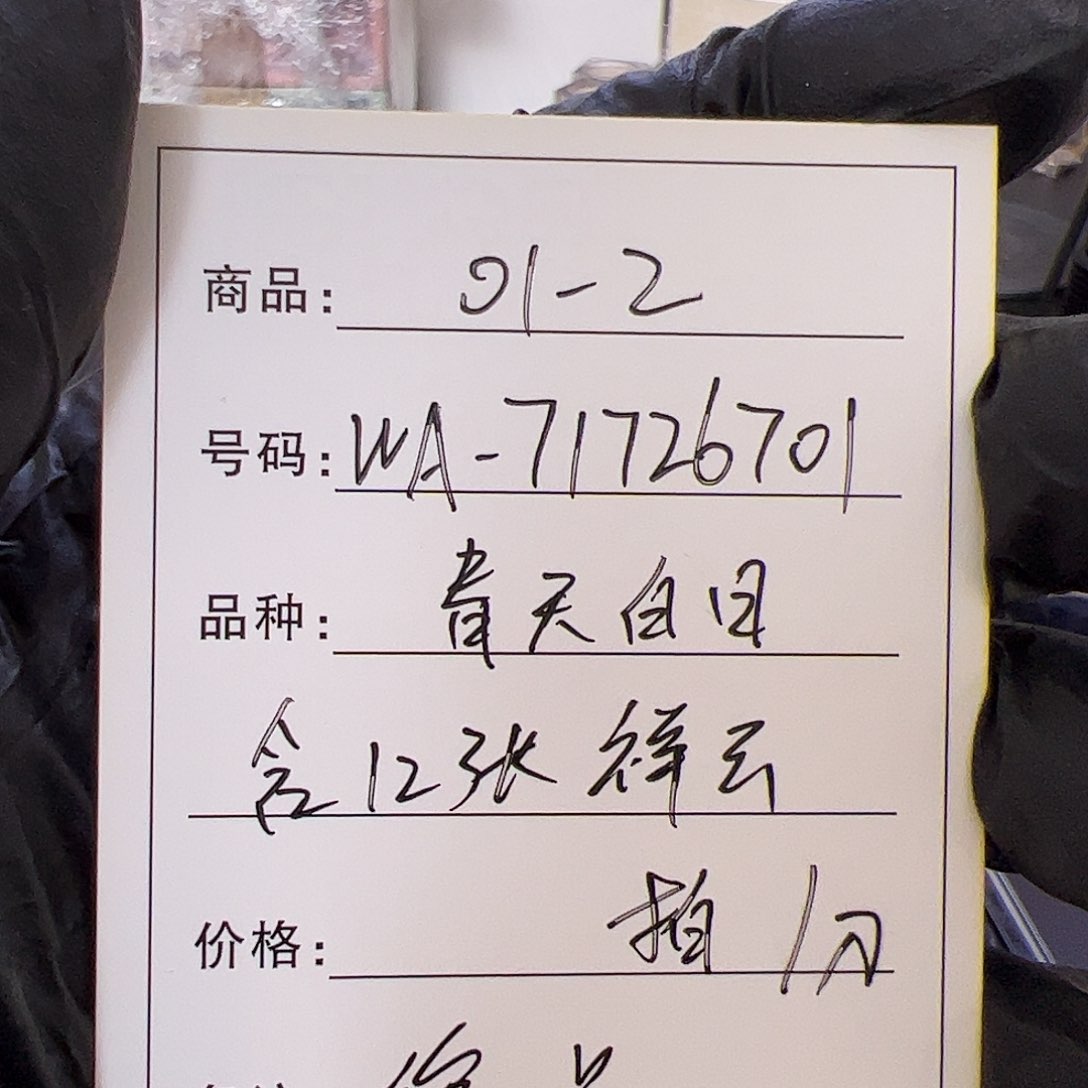 商品： 01-2
号码： WA-71726701
品种： 青天白日
含12张祥云
价格： 拍1刀